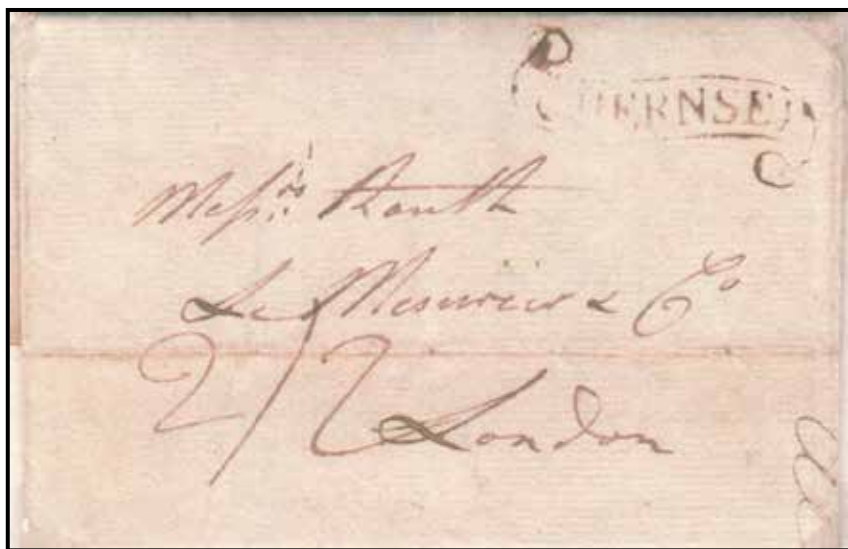 GUERNSEY
Messrs. Routh
Le Mesurier & Co
2/2 London